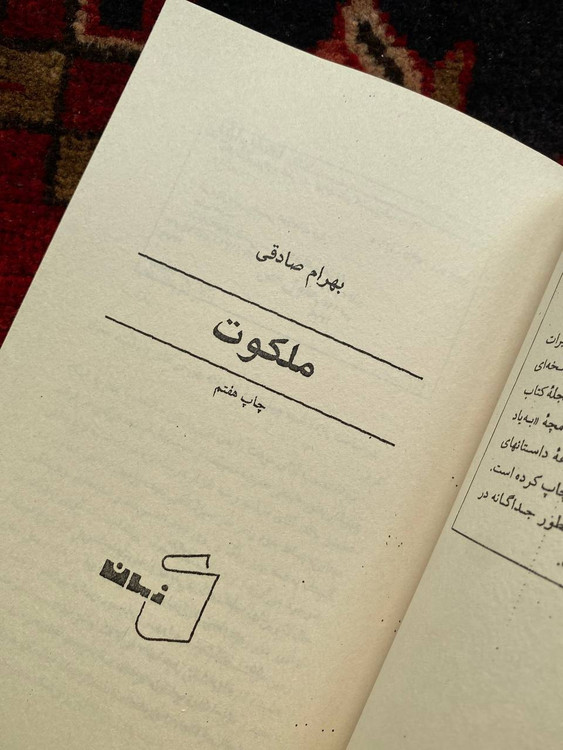 بهرام صادقی
ملکوت
چاپ هفتم
کتاب
زمان
سخه‌ای
جلهٔ کتاب
«به‌یاد
داستانهای
چاپ کرده است.
طور جداگانه در